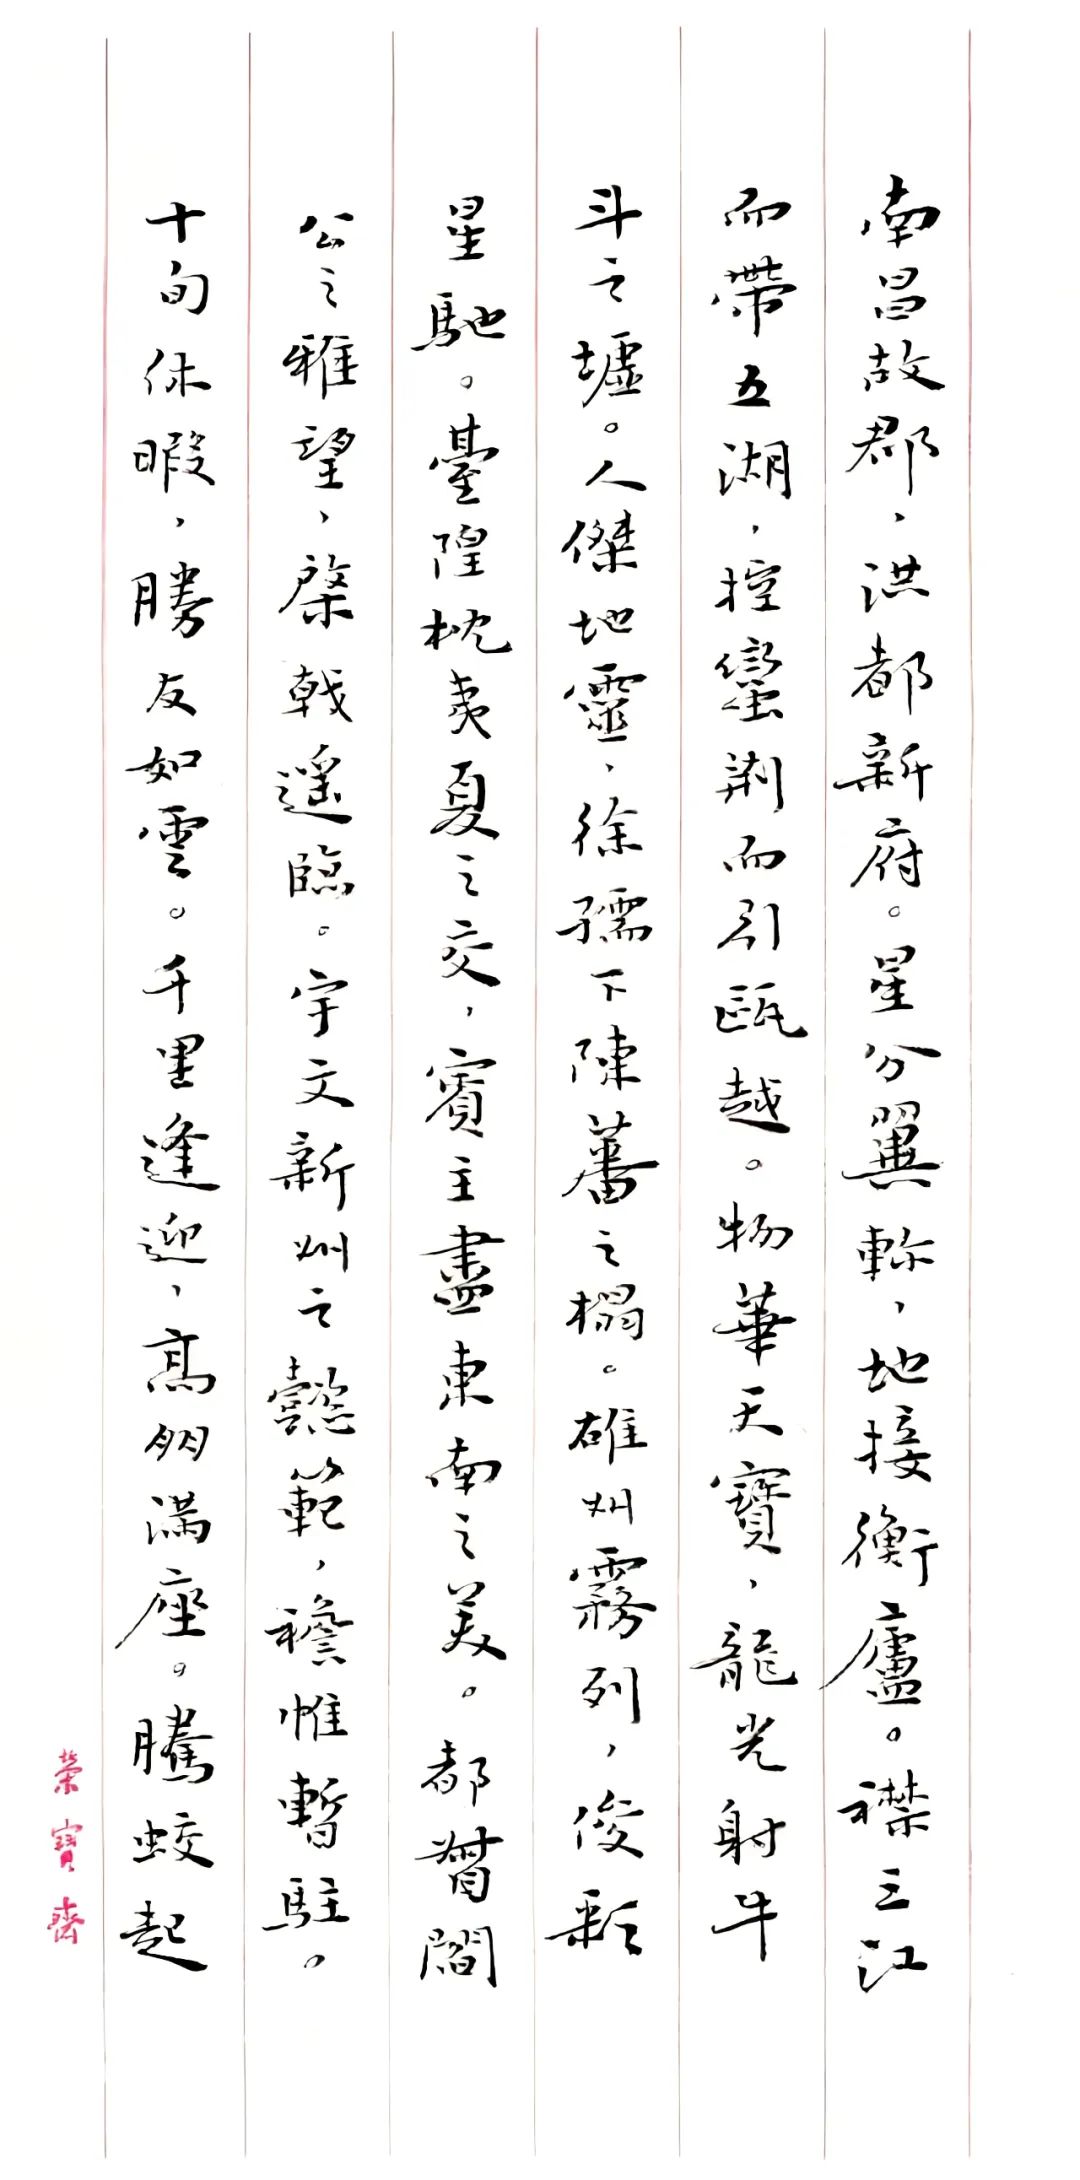 南昌故郡，洪都新府。星分翼軫，地接衡廬。襟三江
而帶五湖，控蠻荆而引甌越。物華天寶，龍光射牛
斗之墟。人傑地靈，徐孺下陳蕃之榻。雄州霧列，俊彩
星馳。臺隍枕夷夏之交，賓主盡東南之美。都督閻
公之雅望，棨戟遥臨。宇文新州之懿範，襜惟暫駐。
十旬休暇，勝友如雲。千里逢迎，高朋满座。騰蛟起
榮寶齋